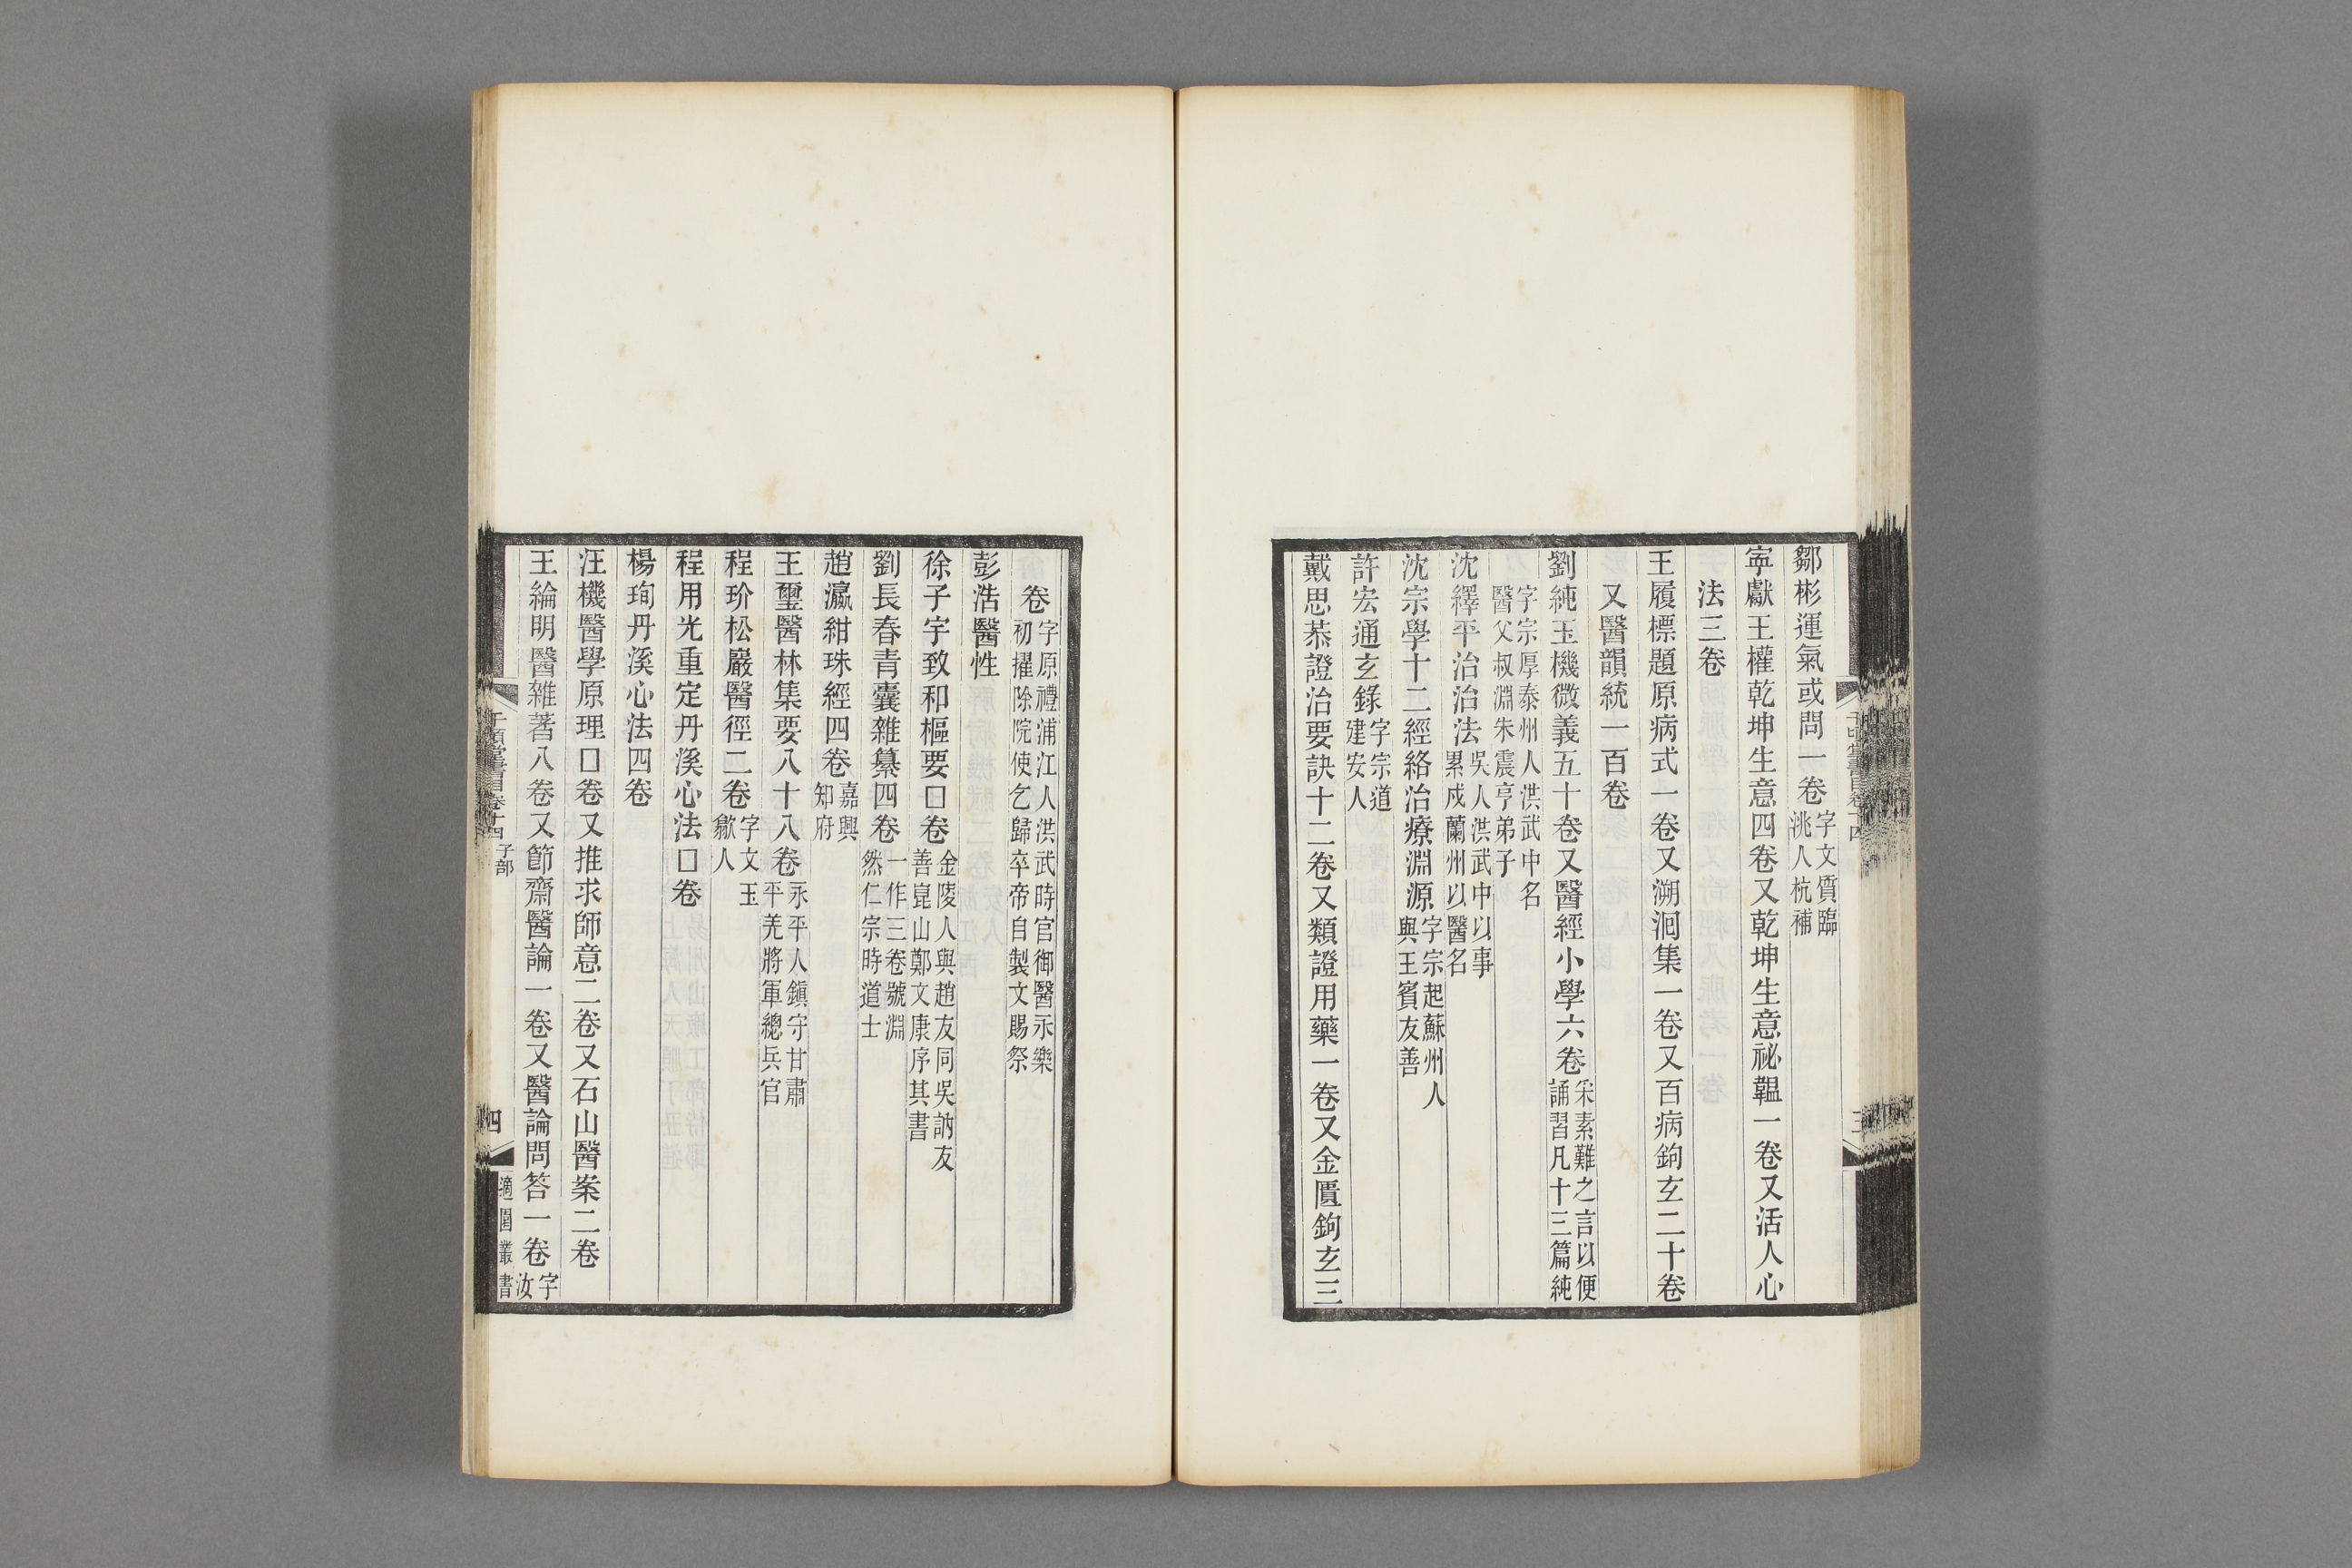 鄒彬運氣或問一卷字文質臨洮人杭補
寧獻王權乾坤生意四卷又乾坤生意祕韞一卷又活人心
法三卷
王履標題原病式一卷又溯洄集一卷又百病鉤玄二十卷
又醫韻統一百卷
劉純玉機微義五十卷又醫經小學六卷采素難之言以便誦習凡十三篇純
字宗厚泰州人洪武中名醫父叔淵朱震亨弟子
沈繹平治治法吳人洪武中以事累戍蘭州以醫名
沈宗學十二經絡治療淵源字宗起蘇州人與王賓友善
許宏通玄錄字宗道建安人
戴思恭證治要訣十二卷又類證用藥一卷又金匱鉤玄三
三
卷字原禮浦江人洪武時官御醫永樂初擢除院使乞歸卒帝自製文賜祭
彭浩醫性
徐子宇致和樞要囗卷金陵人與趙友同吳訥友善崑山鄭文康序其書
劉長春青囊雜纂四卷一作三卷號淵然仁宗時道士
趙瀛紺珠經四卷嘉興知府
王璽醫林集要八十八卷永平人鎭守甘肅平羌將軍總兵官
程玠松巖醫徑二卷字文玉歙人
程用光重定丹溪心法囗卷
楊珣丹溪心法四卷
汪機醫學原理囗卷又推求師意二卷又石山醫案二卷
王綸明醫雜著八卷又節齋醫論一卷又醫論問答一卷字汝
千頃堂書目卷十四 子部
四
適園叢書